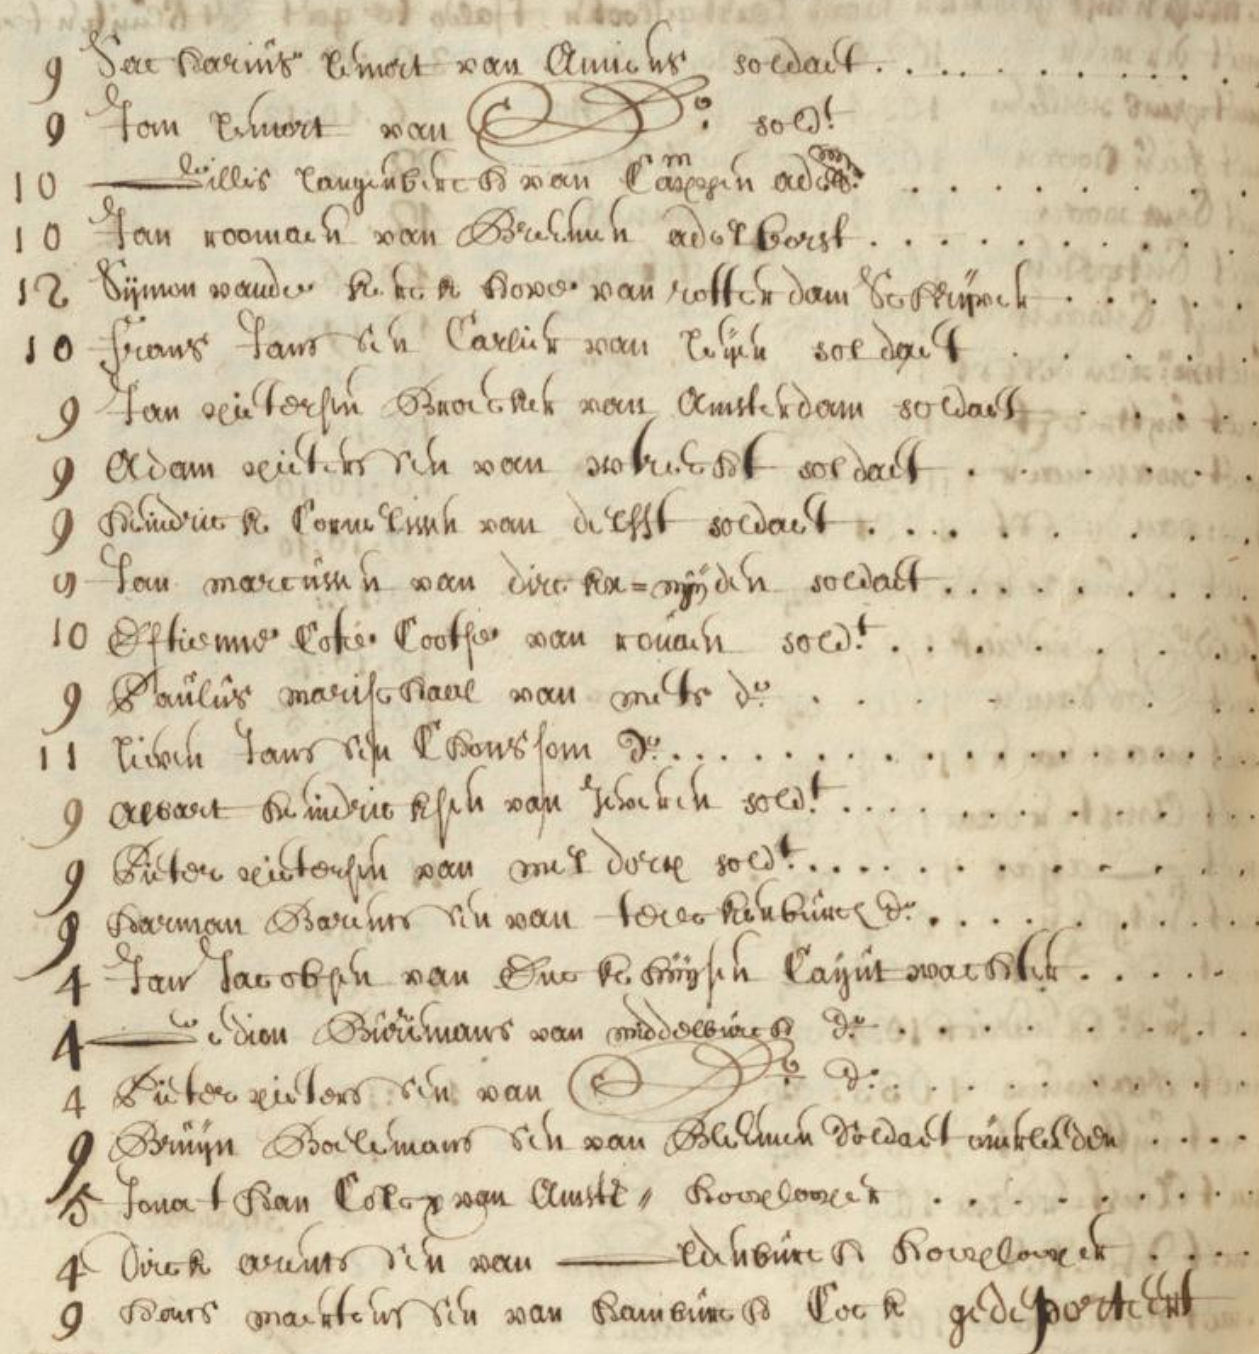 9 Sacharius Lemort van Amiens soldaet
9 Jan Lemort van do. soldt
10 Willis Langenberch van Campen adelb.
10 Jan roomaen van Bremen adelborst
12 Sijmon vander kerckhove van rotterdam
10 frans Janssen Carlier van soldaet
9 Jan pietersen Broecker van Amsterdam soldaet
9 Adam pieterssen van wtrecht soldaet
9 heindrick Cornelissen van delfft soldaet
9 Jan marcussen van soldaet
10 Estienne Cootse van rouaen soldt
9 Paulus marischael van mets do
11 lieven Janssen do
9 albart heindricksen van Jeveren soldt
9 Pieter pietersen van meldorp soldt
9 harman Barentssen van do
4 Jan Jacobsen van Enckhuijsen Cajutwachter
4 van middelburch do
4 Pieter pieterssen van do. do
9 Bruijn van Bremen Soldaet overleeden
5 Jonathan van Amst// hooplooper
4 Dirck arentssen van hooplooper
9 hans maertenssen van hamburch Cock gedeporteert